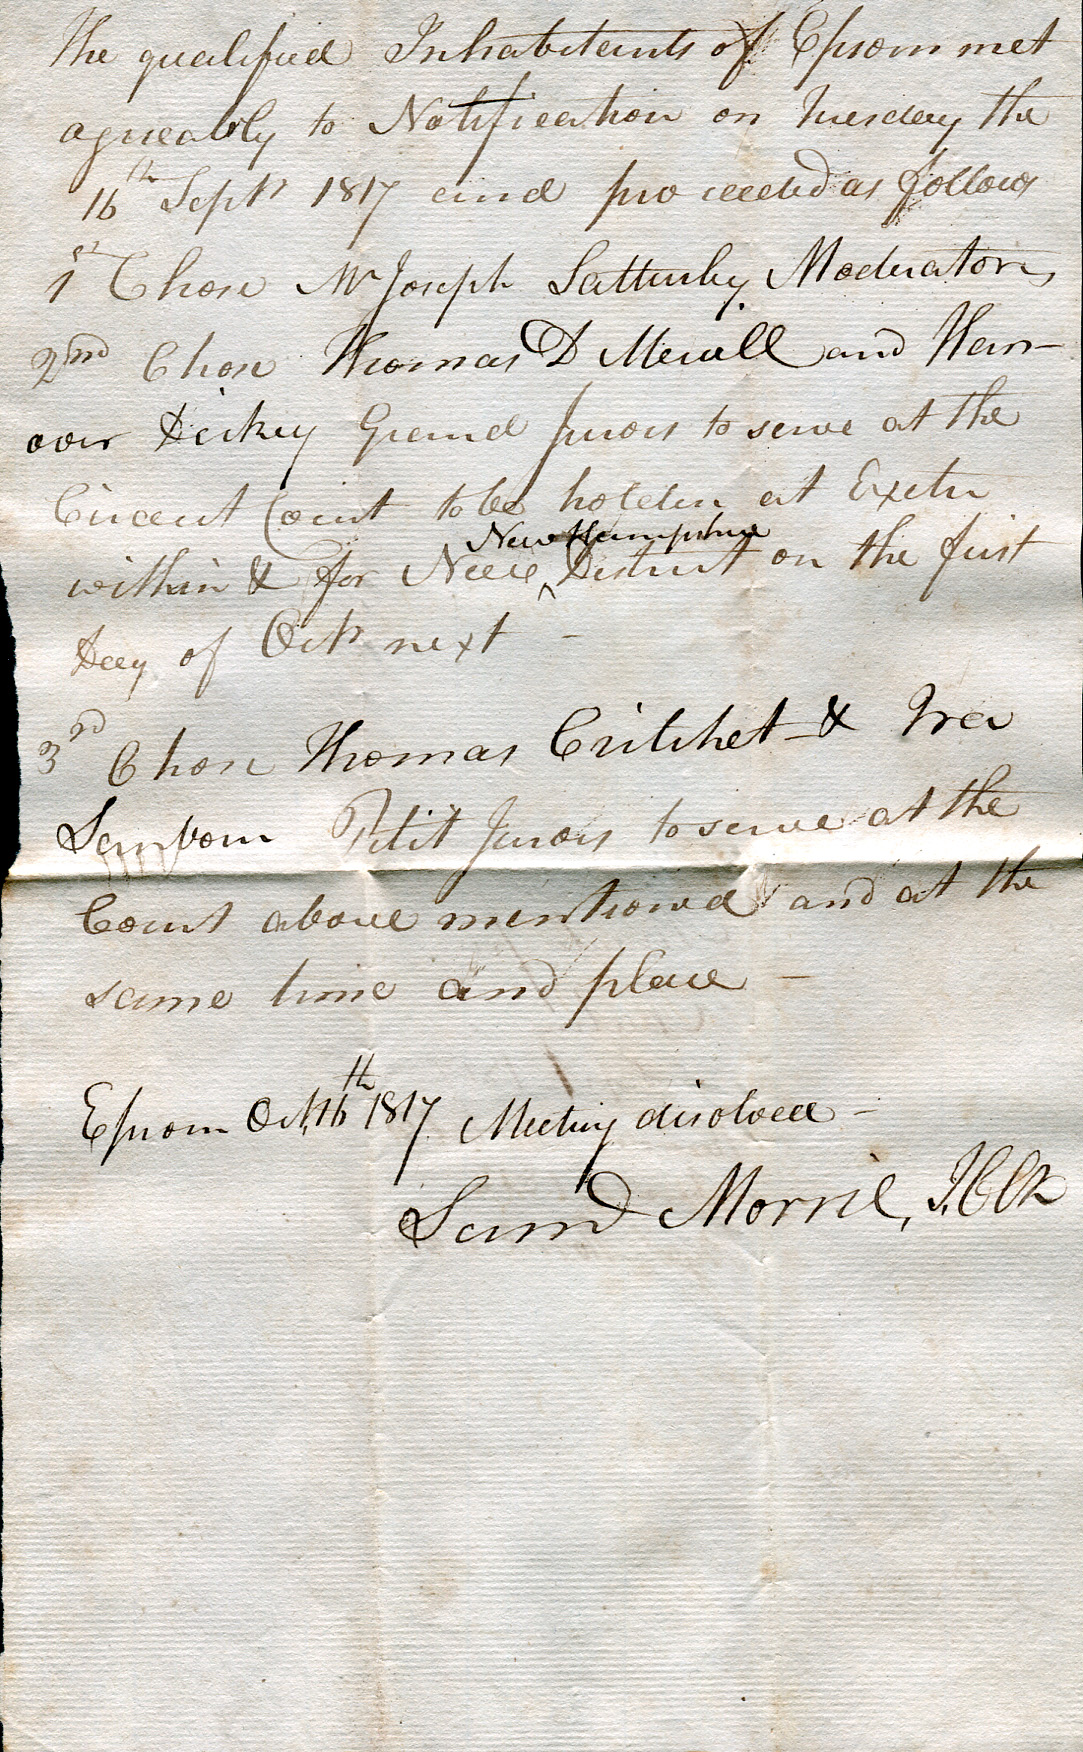 The qualified Inhabitants of Epsom met
agreeably to Notification on Tuesday the
16th Sept 1817 and proceeded as follows
1st Chose Mr Joseph Satturley Moderator,
2nd Chose Thomas D Merrill and Han-
over Dickey Grand Jurors to serve at the
Circuit Court to be holden at Exeter
New Hampshire
within & for New ^ District on the first
Day of Octr next -
3rd Chose Thomas Critchet & Ira
Sanborn Petit Jurors to serve at the
Court above mentioned and at the
same time and place -
Epsom Oct, 16th 1817 Meeting disolved -
Samd Morril, T. Clk